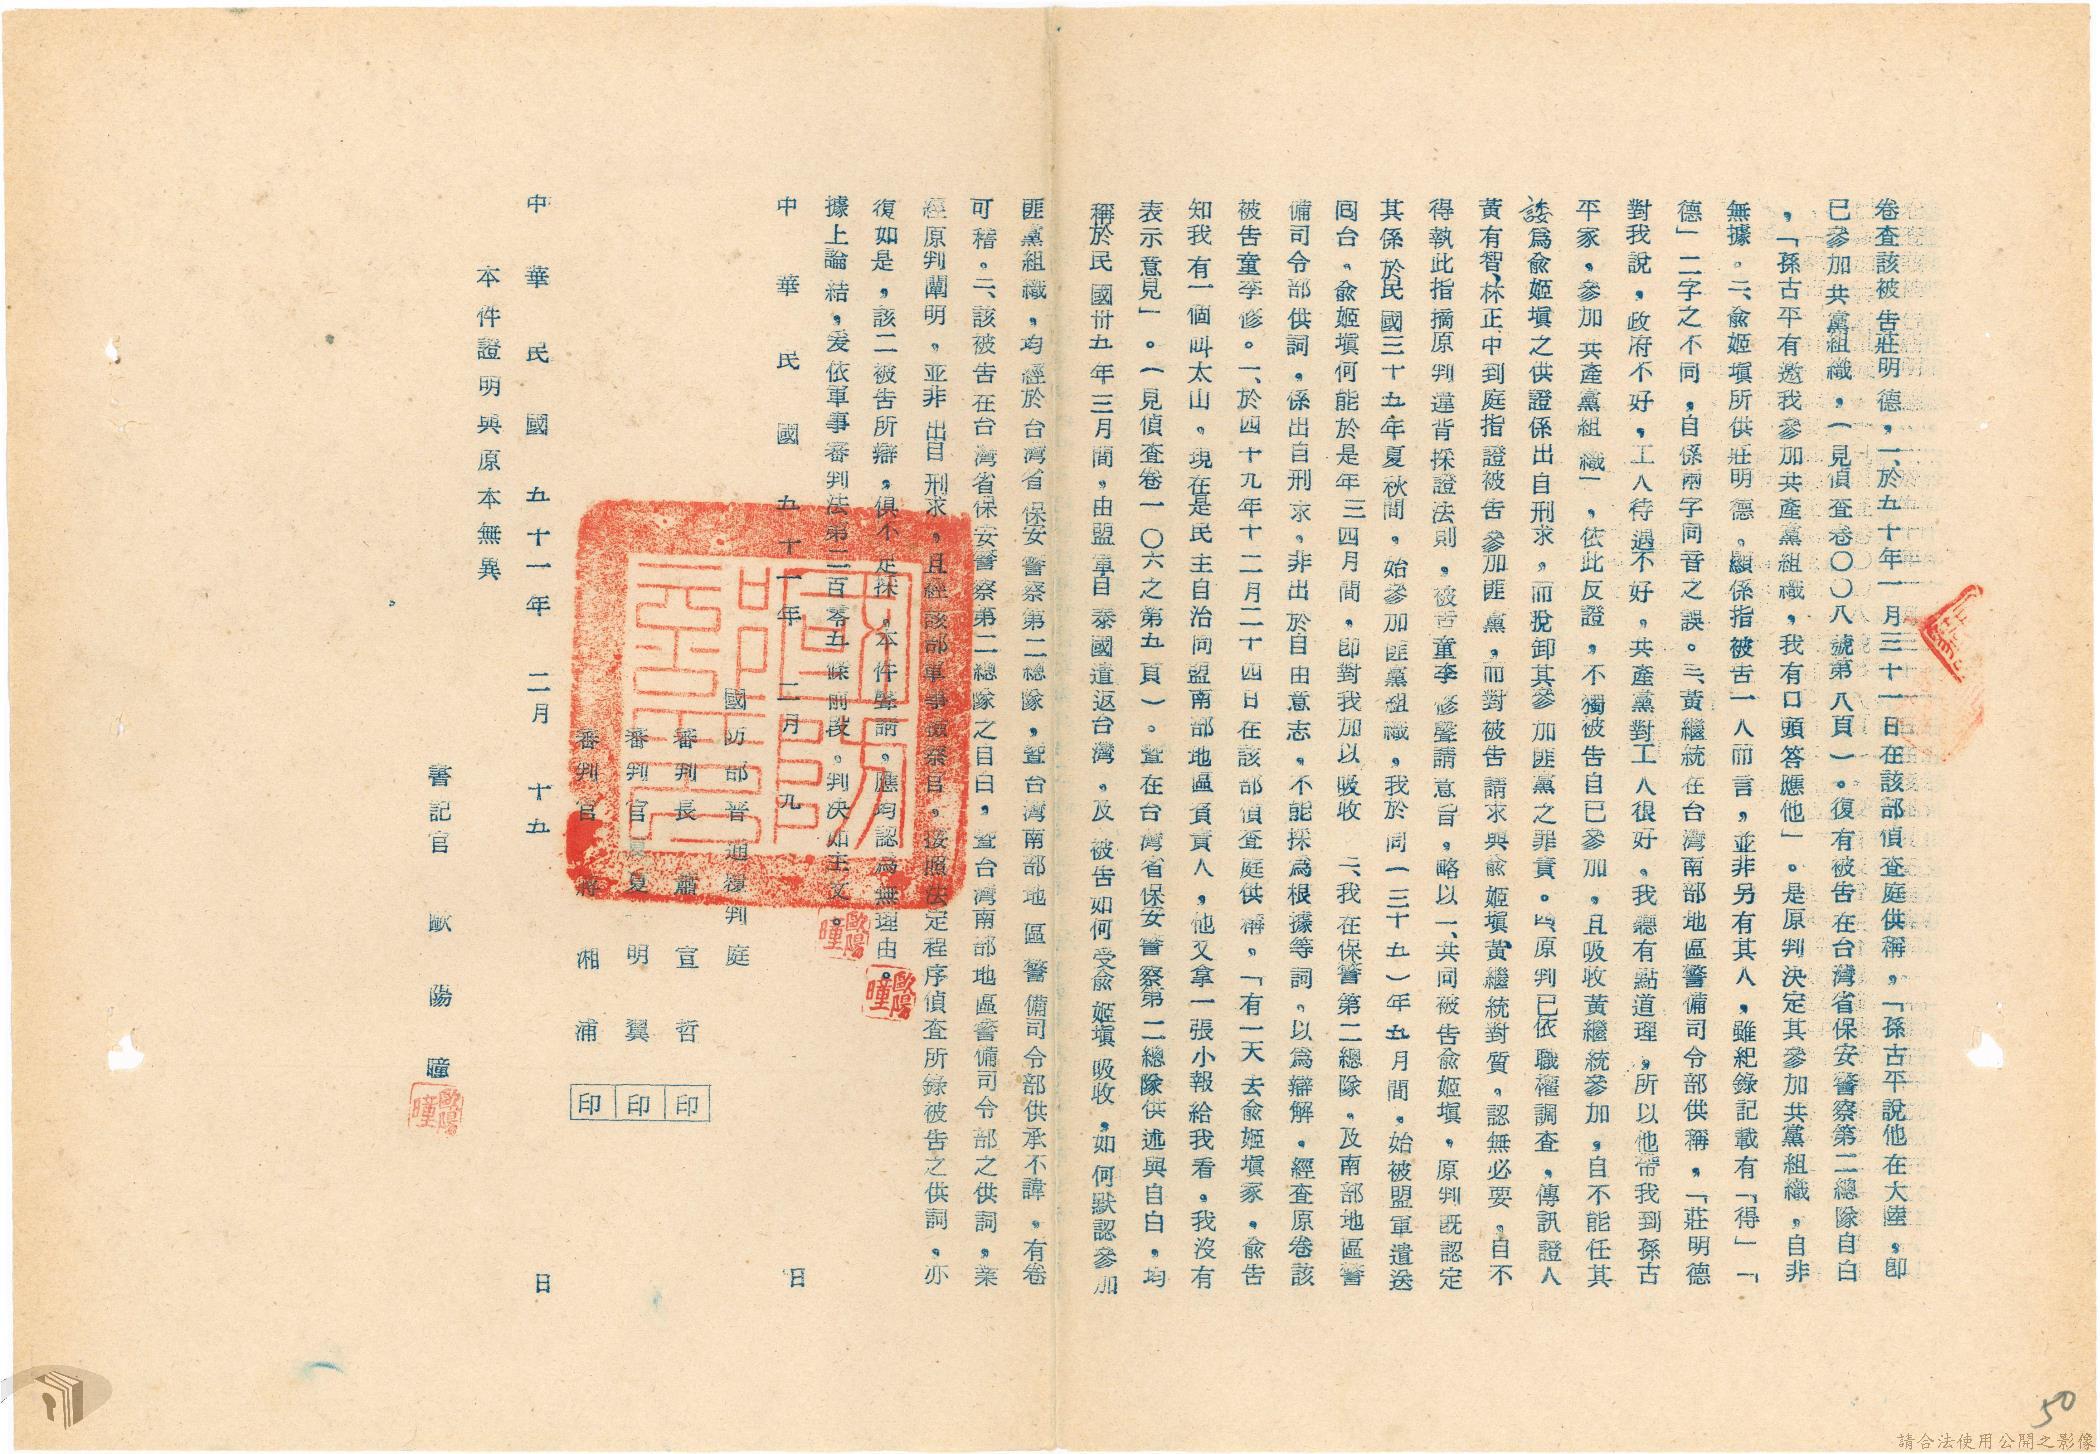 卷查該被告莊明德，一、於五十年一月三十一日在該部偵查庭供稱，「孫古平說他在大陸，即
已參加共黨組織，（見偵查卷〇〇八號第八頁）。復有被告在台灣省保安警察第二總隊自白
，「孫古平有邀我參加共產黨組織，我有口頭答應他」。是原判決定其參加共黨組織，自非
無據。二、俞姬塡所供莊明德，顯係指被告一人而言，並非另有其人，雖紀錄記載有「得」「
德」二字之不同，自係兩字同音之誤。三、黃繼統在台灣南部地區警備司令部供稱，「莊明德
對我說，政府不好，工人待遇不好，共產黨對工人很好，我聽有點道理，所以他帶我到孫古
平家，參加共產黨組織」，依此反證，不獨被告自已參加，且吸收黃繼統參加，自不能任其
諉爲俞姬塡之供證係出自刑求，而脫卸其參加匪黨之罪責。四、原判已依職權調查，傳訊證人
黃有智、林正中到庭指證被告參加匪黨，而對被告請求與俞姬塡黃繼統對質，認無必要，自不
得執此指摘原判違背採證法則，被吿童李修聲請意旨，略以一、共同被告俞姬塡，原判既認定
其係於民國三十五年夏秋間，始參加匪黨組織，我於同（三十五）年五月間，始被盟軍遣送
回台，俞姬塡何能於是年三四月間，卽對我加以吸收　二、我在保警第二總隊，及南部地區警
備司令部供詞，係出自刑求，非出於自由意志，不能採爲根據等詞，以爲辯解，經查原卷該
被告童李修。一、於四十九年十二月二十四日在該部偵查庭供稱，「有一天去俞姬塡家，俞告
知我有一個叫太山，現在是民主自治同盟南部地區負責人，他又拿一張小報給我看，我沒有
表示意見」。（見偵查卷一〇六之第五頁）。暨在台灣省保安警察第二總隊供述與自白，均
稱於民國卅五年三月間，由盟軍自泰國遣返台灣，及被告如何受俞姬塡吸收，如何默認參加
匪黨組織，均經於台灣省保安警察第二總隊，暨台灣南部地區警備司令部供承不諱，有卷
可稽。二、該被告在台灣省保安警察第二總隊之自白，暨台灣南部地區警備司令部之供詞，業
經原判闡明，並非出自刑求，且經該部軍事檢察官，按照法定程序偵查所錄被告之供詞，亦
復如是，該二被告所辯，俱不足採，本件聲請，應均認爲無理由。
據上論結，爰依軍事審判法第二百零五條前段，判决如主文。
中華民國五十一年二月九日
國防部普通覆判庭
審判長蕭宣哲 印
審判官夏明翼 印
審判官蔣湘浦 印
中華民國五十一年二月十五日
本件證明與原本無異
書記官 歐陽瞳
歐陽瞳
歐陽瞳
歐陽瞳
50
請合法使用公開之影像